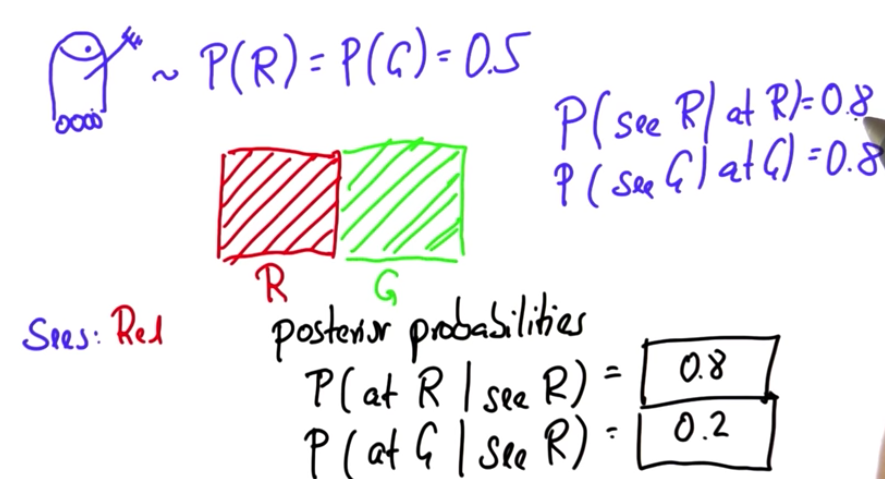 ~ P(R) = P(G) = 0.5
P( see R | at R) = 0.8
P( see G | at G) = 0.8
R G
Sees: Red
posterior probabilities
P( at R | see R) = 0.8
P( at G | see R) = 0.2